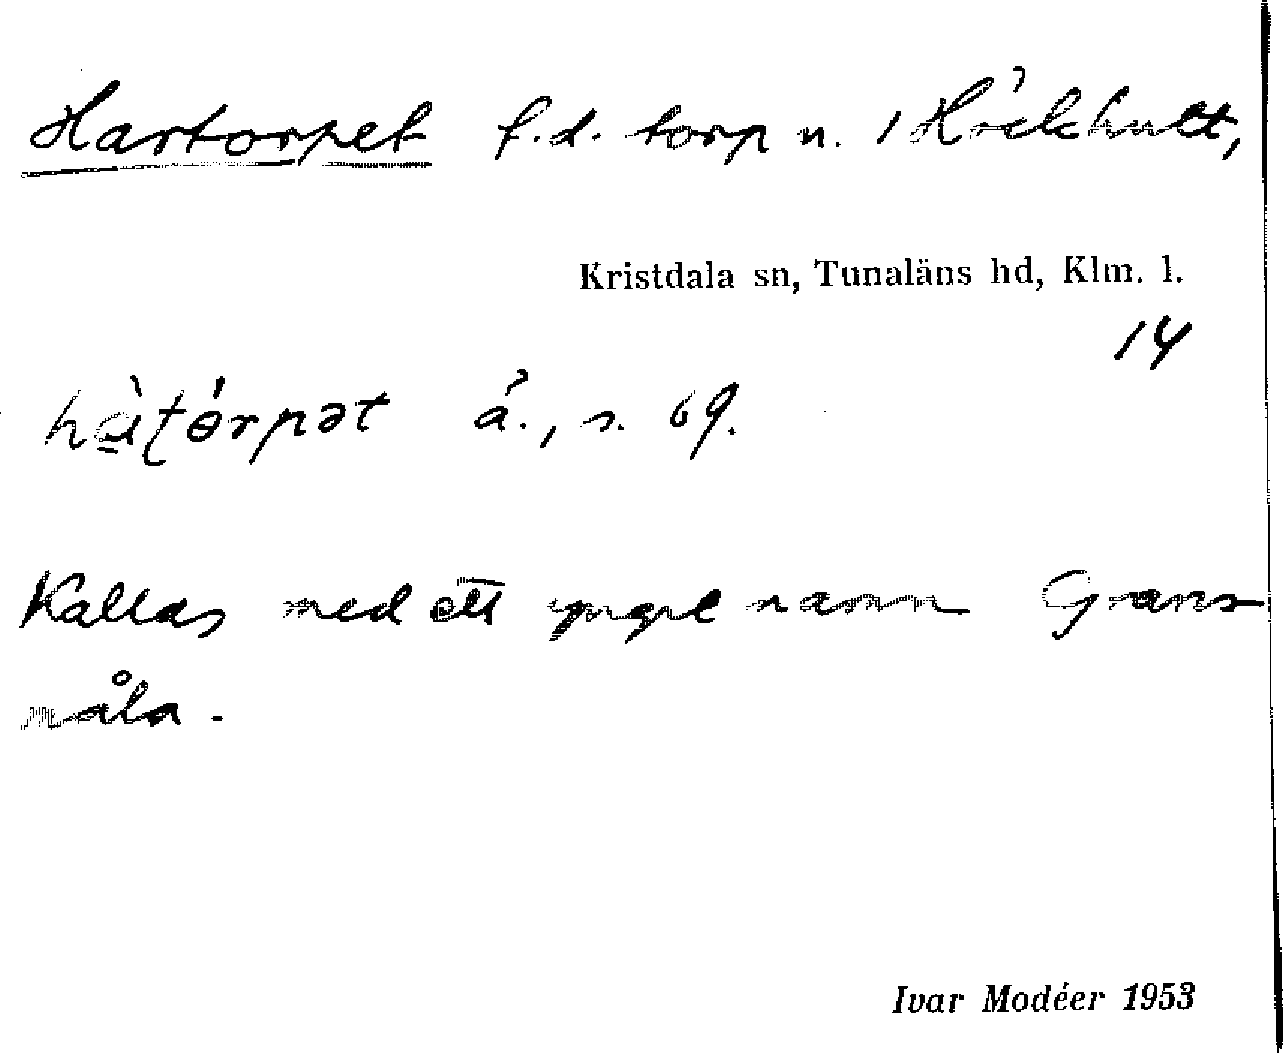 Hartorpet f.d. torp u. 1 Höckhult,
Kristdala sn, Tunaläns hd, Klm. l.
14
hàt́órpət a., s. 69.
Kallas med ett yngre namn Grans
måla.
Ivar Modéer 1953